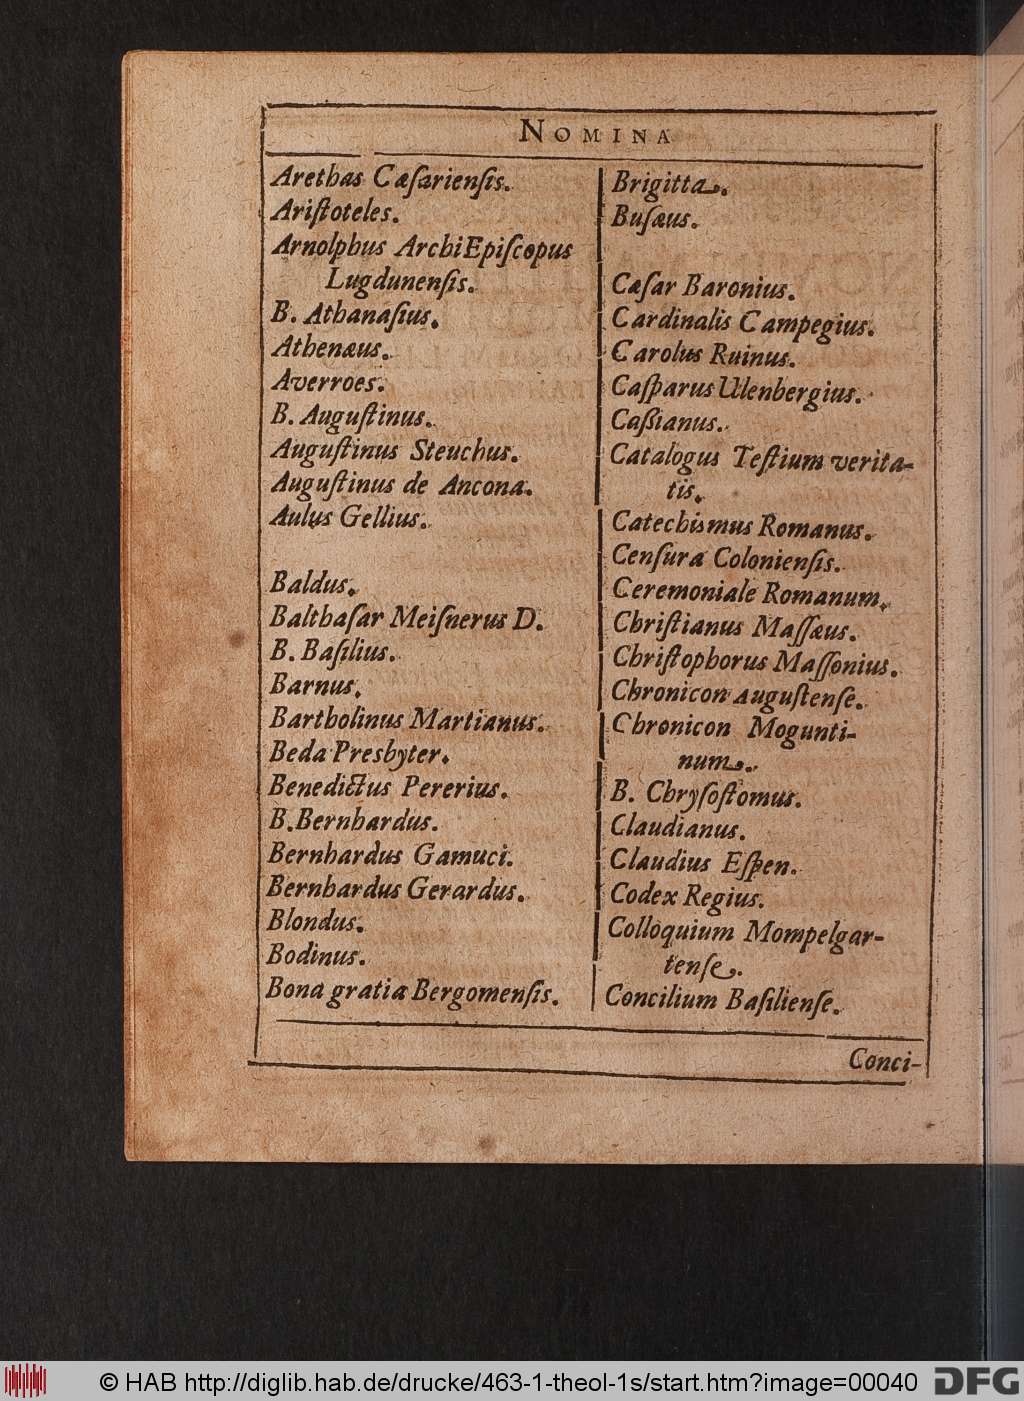 NOMINA
Arethas Cæſarienſis.
Ariſtoteles.
Arnolphus ArchiEpiſcopus
Lugdunenſis.
B. Athanaſius.
Athenæus.
Averroes.
B. Auguſtinus.
Auguſtinus Steuchus.
Auguſtinus de Ancona.
Aulus Gellius.
Baldus.
Balthaſar Meiſnerus D.
B. Baſilius.
Barnus.
Bartholinus Martianus.
Beda Presbyter.
Benedictus Pererius.
B. Bernhardus.
Bernhardus Gamuci.
Bernhardus Gerardus.
Blondus.
Bodinus.
Bona gratia Bergomenſis.
Brigitta.
Buſæus.
Cæſar Baronius.
Cardinalis Campegius.
Carolus Ruinus.
Caſparus Ulenbergius.
Caßianus.
Catalogus Teſtium verita-
tis.
Catechismus Romanus.
Cenſura Colonienſis.
Ceremoniale Romanum.
Chriſtianus Maſſæus.
Chriſtophorus Maſſonius.
Chronicon Auguſtenſe.
Chronicon Mogunti-
num.
B. Chryſoſtomus.
Claudianus.
Claudius Eſpen.
Codex Regius.
Colloquium Mompelgar-
tenſe.
Concilium Baſilienſe.
Conci-
© HAB http://diglib.hab.de/drucke/463-1-theol-1s/start.htm?image=00040
DFG